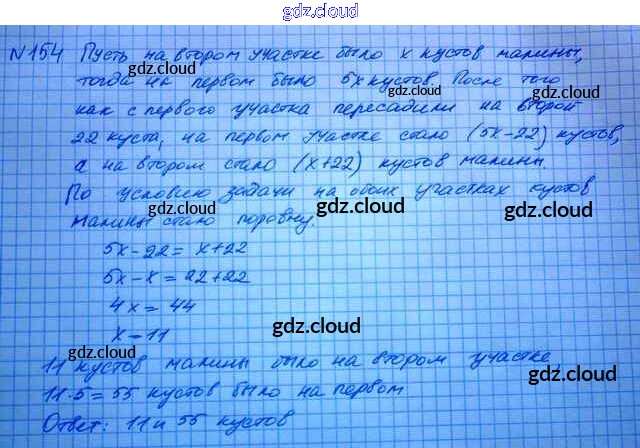 gdz.cloud
N154 Пусть на втором участке было x кустов малины,
gdz.cloud
тогда на первом было 5x кустов. После того
gdz.cloud
как с первого участка пересадили на второй
22 куста, на первом участке стало (5x-22) кустов,
а на втором стало (x+22) кустов малины
По условию задачи на обоих участках кустов
gdz.cloud gdz.cloud gdz.cloud
малины стало поровну.
5x-22= x+22
5x-x=22+22
4x= 44
x=11
gdz.cloud
11 кустов малины было на втором участке,
gdz.cloud gdz.cloud
11·5= 55 кустов было на первом
gdz.cloud
Ответ: 11 и 55 кустов